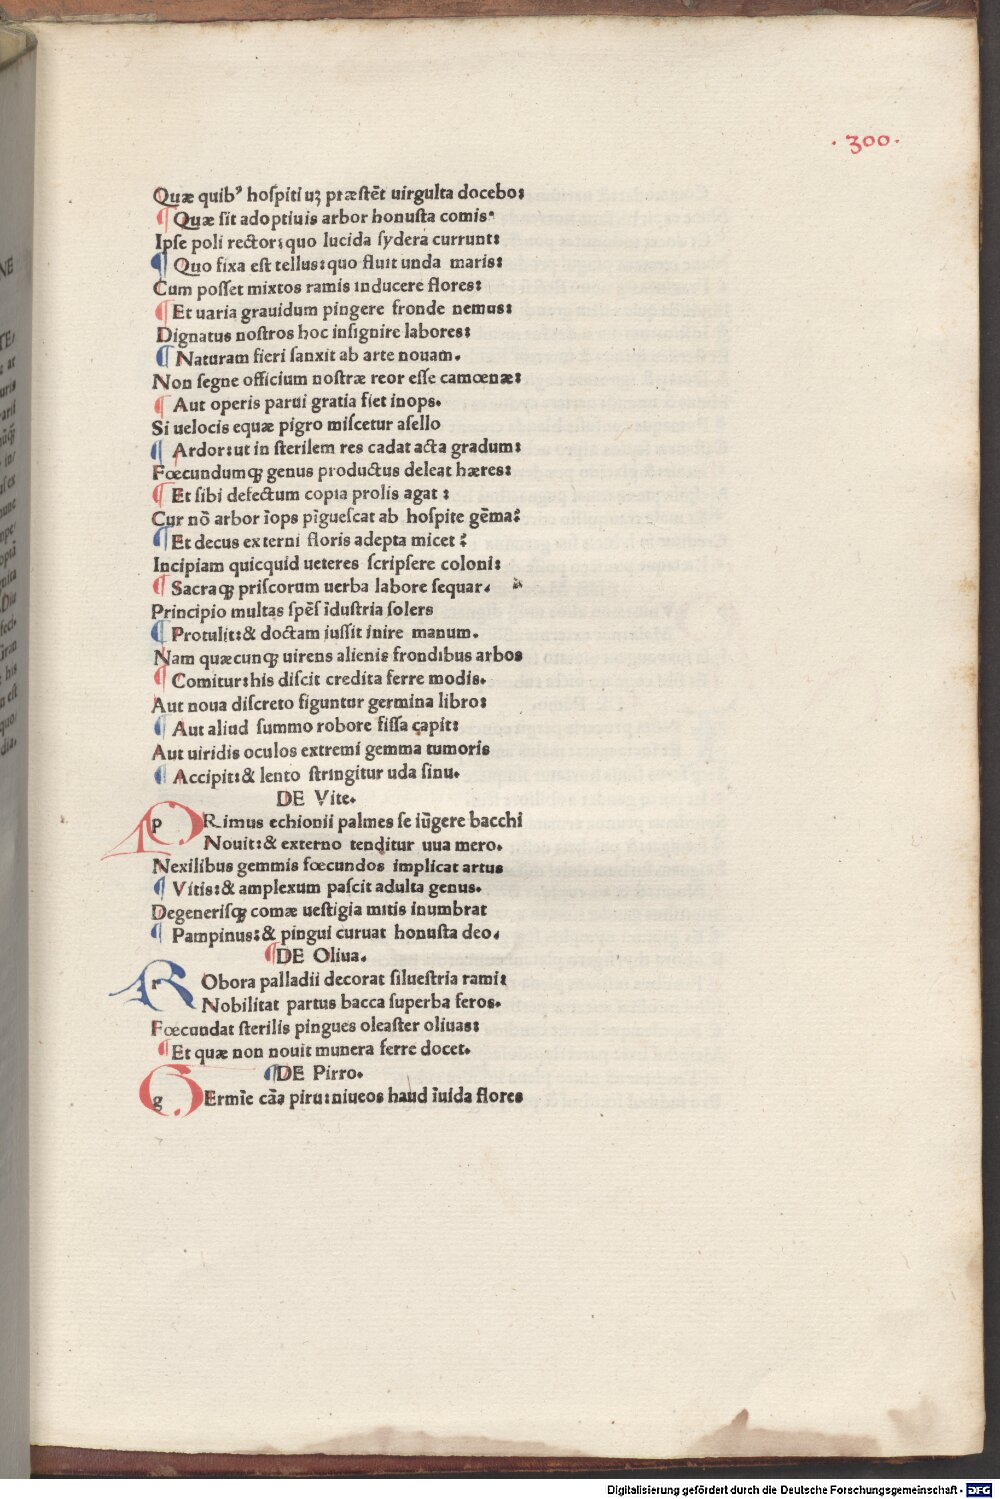 · 300 ·
Quæ quibꝰ hoſpitiuꝫ præſtēt uirgulta docebo:
¶ Quæ ſit adoptiuis arbor honuſta comis·
Ipſe poli rector: quo lucida ſydera currunt:
¶ Quo fixa eſt tellus: quo fluit unda maris:
Cum poſſet mixtos ramis inducere flores:
¶ Et uaria grauidum pingere fronde nemus:
Dignatus noſtros hoc inſignire labores:
¶ Naturam fieri ſanxit ab arte nouam.
Non ſegne officium noſtræ reor eſſe camœnæ:
¶ Aut operis parui gratia fiet inops.
Si uelocis equæ pigro miſcetur aſello
¶ Ardor: ut in ſterilem res cadat acta gradum:
Fœcundumqꝫ genus productus deleat hæres:
¶ Et ſibi defectum copia prolis agat:
Cur nō arbor īops pīgueſcat ab hoſpite gēma?
¶ Et decus externi floris adepta micet?
Incipiam quicquid ueteres ſcripſere coloni:
¶ Sacraqꝫ priſcorum uerba labore ſequar.
Principio multas ſpēſ īduſtria ſolers
¶ Protulit: & doctam iuſſit inire manum.
Nam quæcunqꝫ uirens alienis frondibus arbos
¶ Comitur: his diſcit credita ferre modis.
Aut noua diſcreto figuntur germina libro:
¶ Aut aliud ſummo robore fiſſa capit:
Aut uiridis oculos extremi gemma tumoris
¶ Accipit: & lento ſtringitur uda ſinu.
DE Vite.
p Rimus echionii palmes ſe iūgere bacchi
Nouit: & externo tenditur uua mero.
Nexilibus gemmis fœcundos implicat artus
¶ Vitis: & amplexum paſcit adulta genus.
Degeneriſqꝫ comæ ueſtigia mitis inumbrat
¶ Pampinus: & pingui curuat honuſta deo.
¶ DE Oliua.
r Obora palladii decorat ſilueſtria rami:
Nobilitat partus bacca ſuperba feros.
Fœcundat ſterilis pingues oleaſter oliuas:
¶ Et quæ non nouit munera ferre docet.
¶ DE Pirro.
g Ermīe cāa piru: niueos haud īuida flores
Digitalisierung gefördert durch die Deutsche Forschungsgemeinschaft - DFG